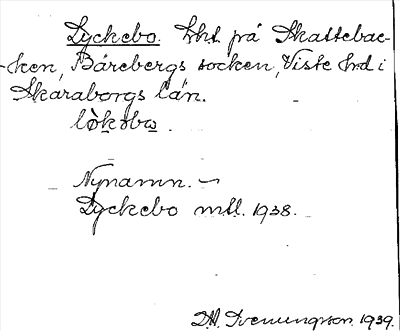 Lyckebo. Lht. på Skattebac-
-ken, Bärebergs socken, Viste hrd i
Skaraborgs län.
Nynamn. —
Lyckebo mtl. 1938.
D.A. Svenungsson. 1939.